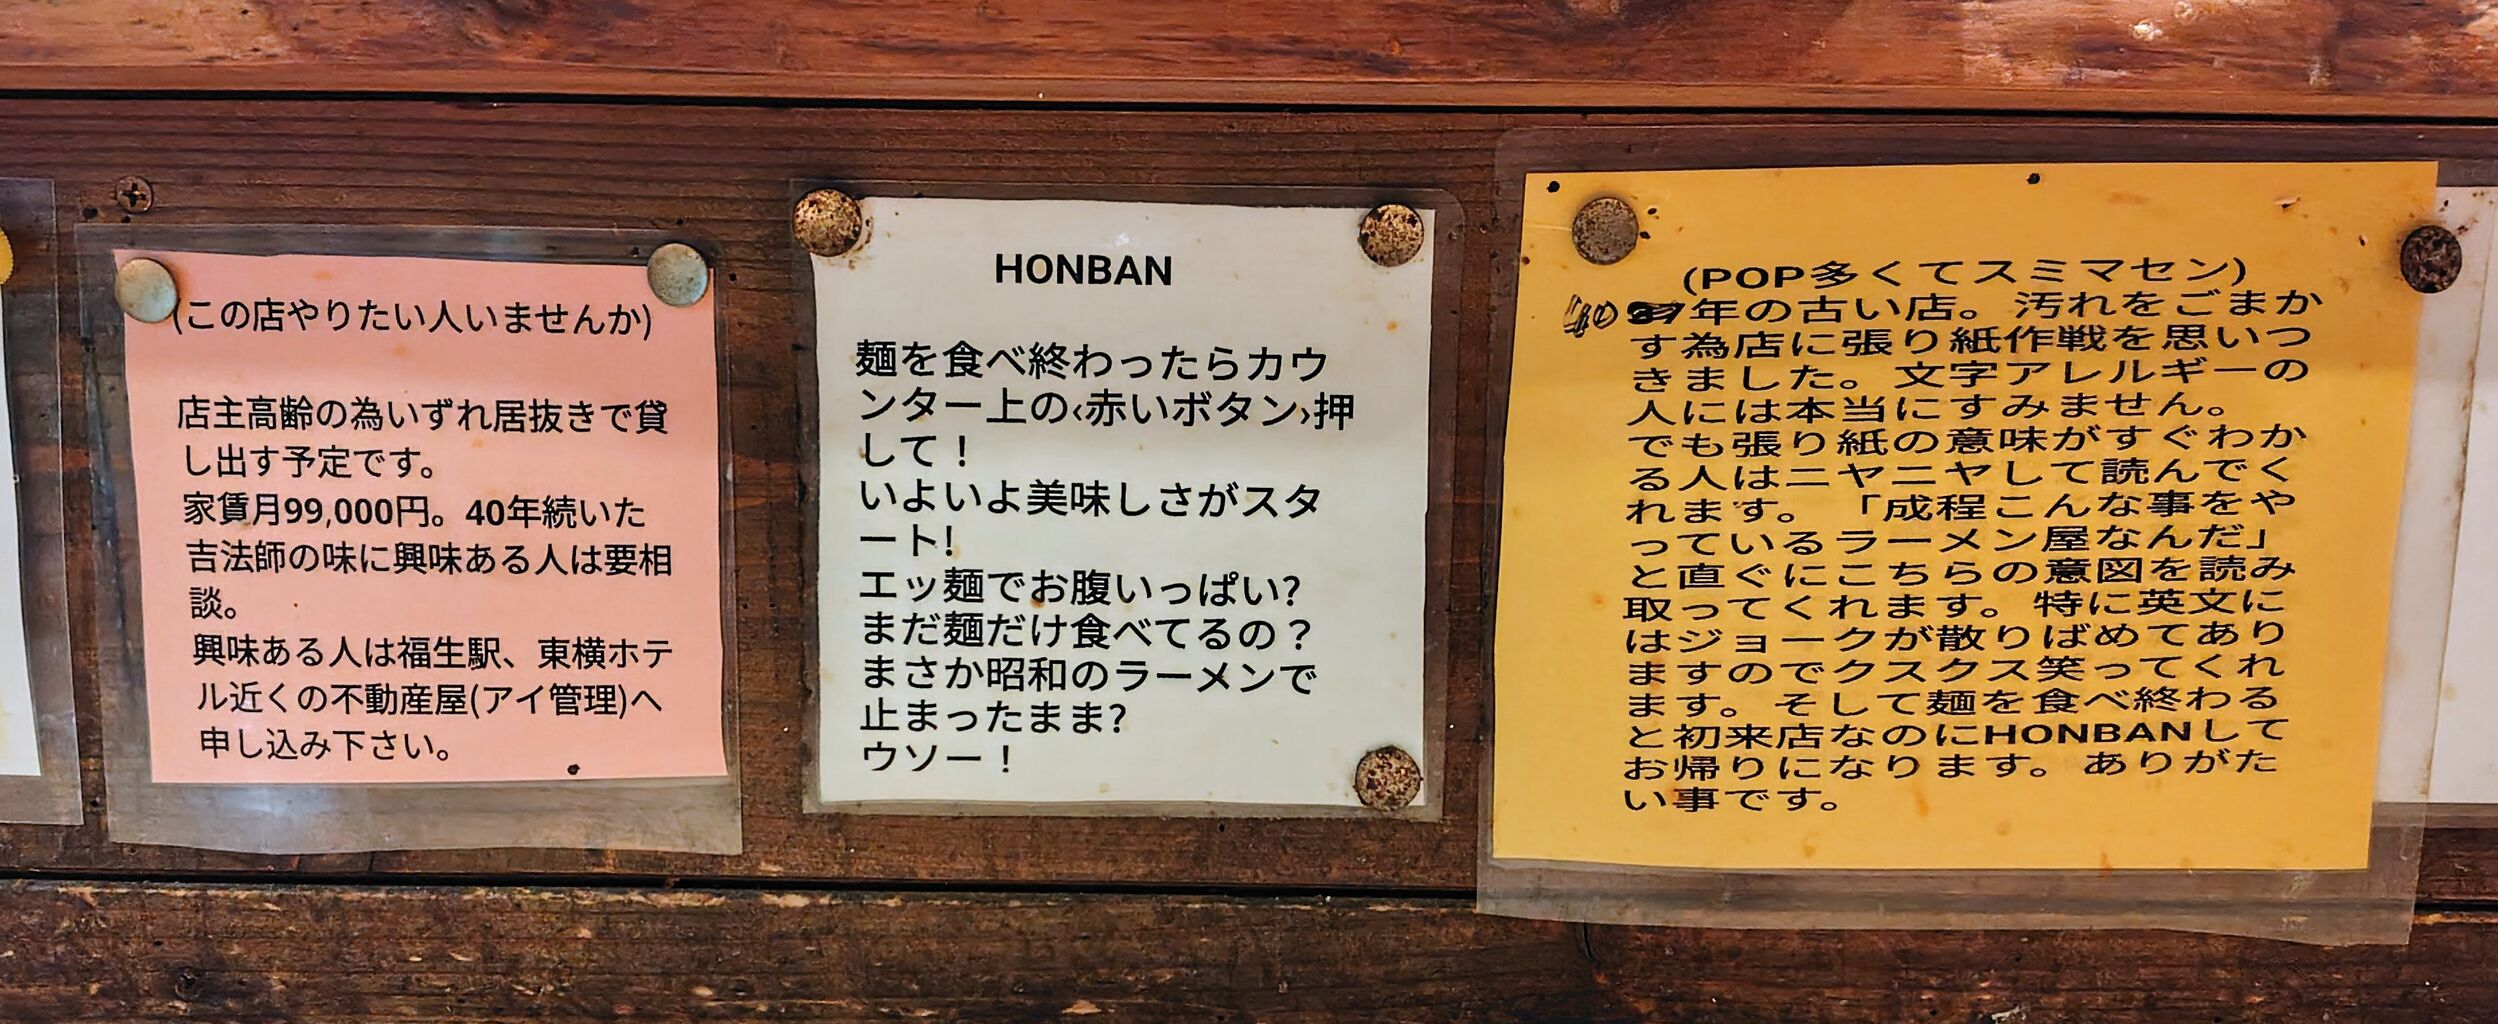 (この店やりたい人いませんか)
店主高齢の為いずれ居抜きで貸
し出す予定です。
家賃月99,000円。40年続いた
吉法師の味に興味ある人は要相
談。
興味ある人は福生駅、東横ホテ
ル近くの不動産屋(アイ管理)へ
申し込み下さい。
HONBAN
麺を食べ終わったらカウ
ンター上の‹赤いボタン›押
して！
いよいよ美味しさがスタ
ート!
エッ麺でお腹いっぱい?
まだ麺だけ食べてるの？
まさか昭和のラーメンで
止まったまま?
ウソー！
(POP多くてスミマセン)
40年の古い店。汚れをごまか
す為店に張り紙作戦を思いつ
きました。文字アレルギーの
人には本当にすみません。
でも張り紙の意味がすぐわか
る人はニヤニヤして読んでく
れます。「成程こんな事をや
っているラーメン屋なんだ」
と直ぐにこちらの意図を読み
取ってくれます。特に英文に
はジョークが散りばめてあり
ますのでクスクス笑ってくれ
ます。そして麺を食べ終わる
と初来店なのにHONBANして
お帰りになります。ありがた
い事です。